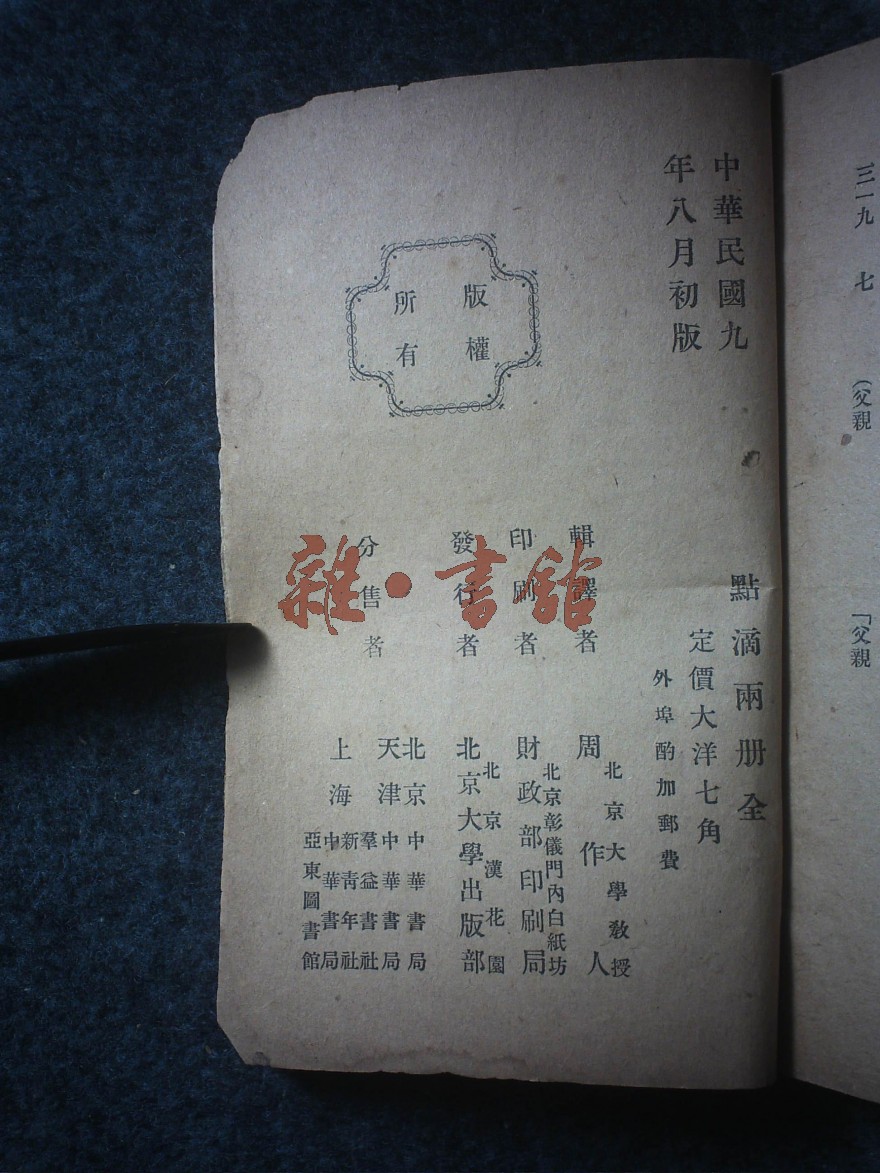 三一九　七　(父親
「父親
中華民國九
年八月初版
版權
所有
點滴兩册全
定價大洋七角
外埠酌加郵費
輯譯者　北京大學教授
周作人
印刷者　北京彰儀門內白紙坊
財政部印刷局
發行者　北京漢花園
北京大學出版部
分售者
北京　中華書局
天津　中華書局
上海　羣益書社
新青年社
中華書局
亞東圖書館
雜·書舘